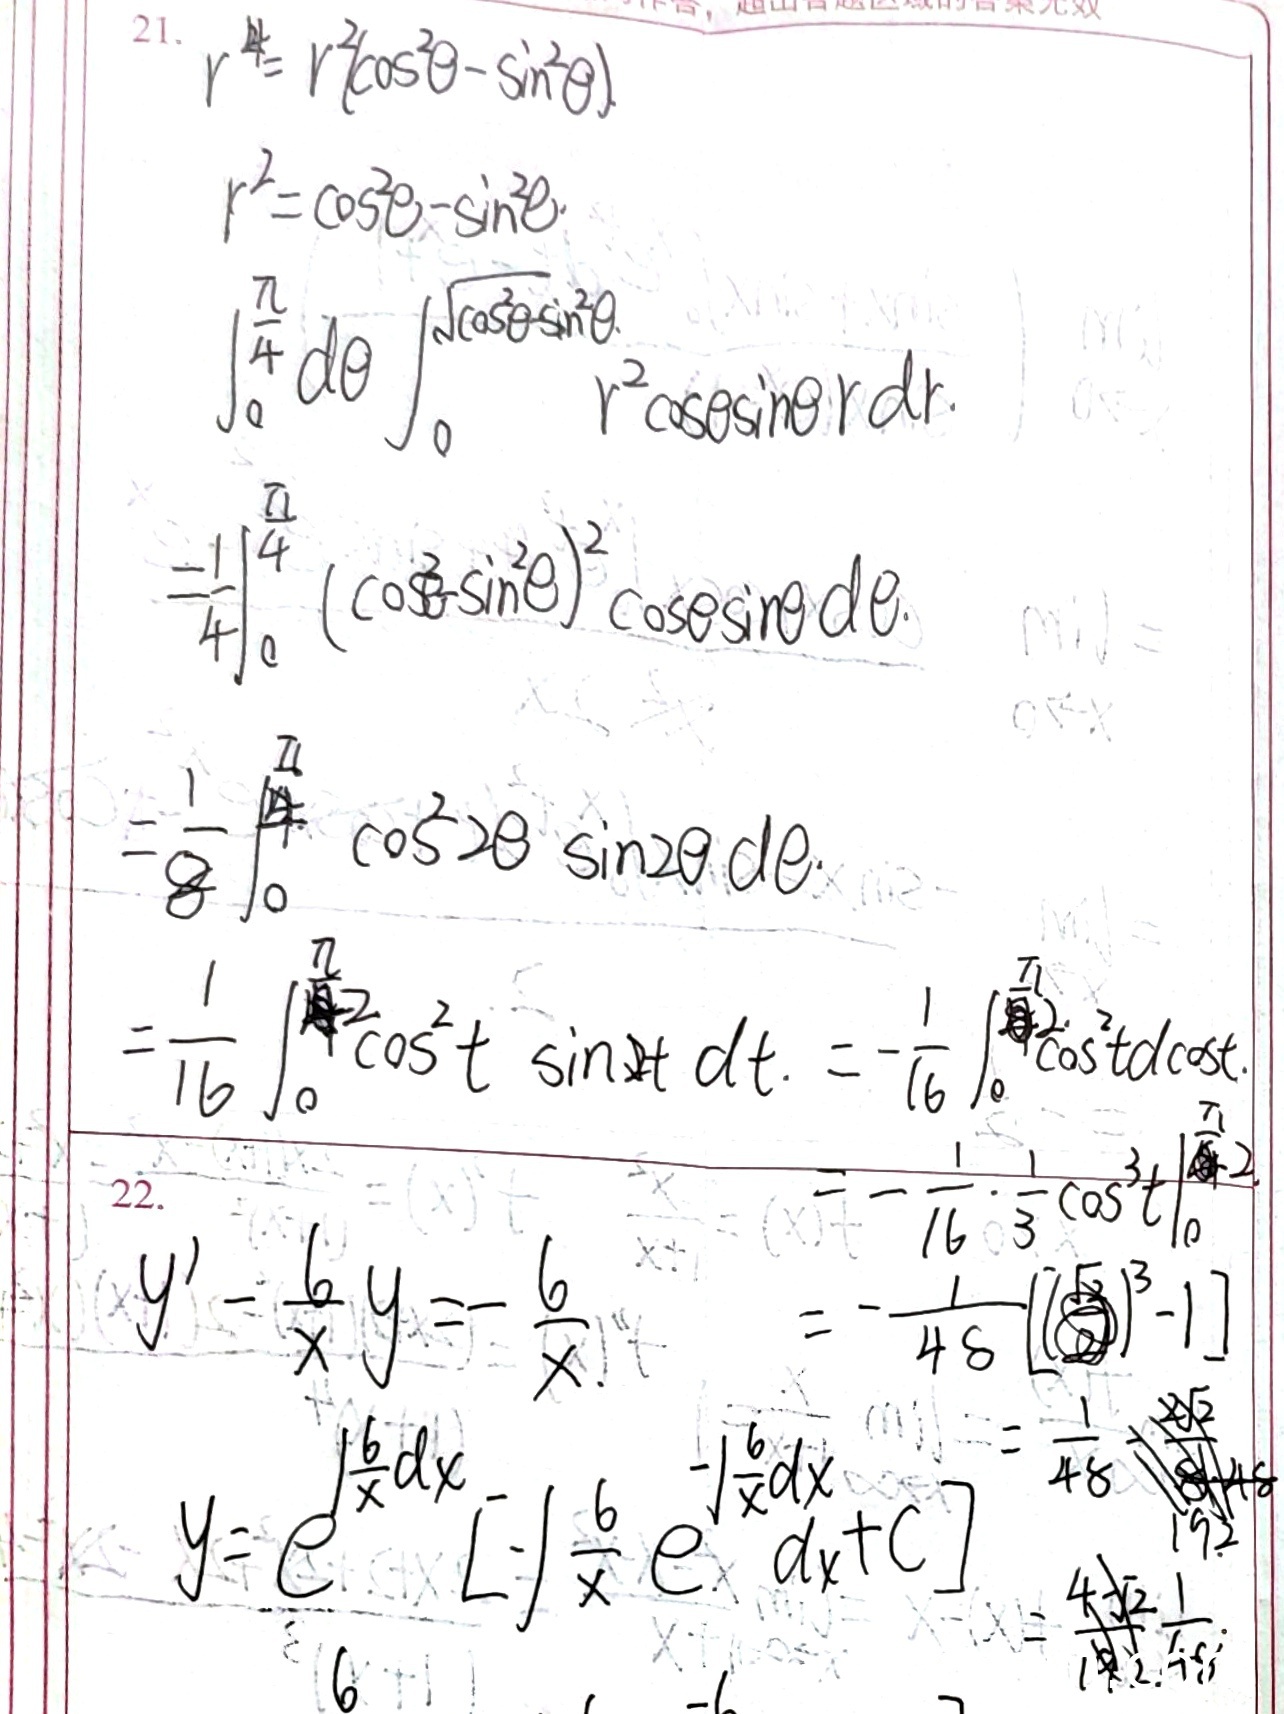 作答，超出答题区域的答案无效
21.
r⁴ = r²(cos²θ - sin²θ).
r² = cos²θ - sin²θ.
∫₀^(π/4) dθ ∫₀^(√(cos²θ-sin²θ)) r²cosθsinθ r dr.
= 1/4 ∫₀^(π/4) (cos²θ-sin²θ)² cosθsinθ dθ.
= 1/8 ∫₀^(π/4) cos²2θ sin2θ dθ.
= 1/16 ∫₀^(π/2) cos²t sint dt. = -1/16 ∫₀^(π/2) cos²t dcost.
= -1/16 · 1/3 cos³t |₀^(π/2)
= -1/48 [( )³ - 1]
= 1/48
= 1/48
22.
y' - 6/x y = - 6/x.
y = e^(∫6/x dx) [-∫ 6/x e^(-∫6/x dx) dx + C]
6
-6